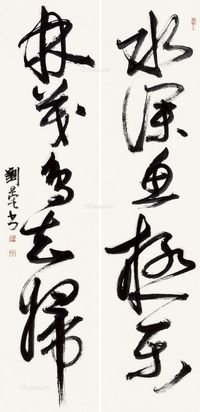 水深魚極樂
林茂鳥知歸
劉